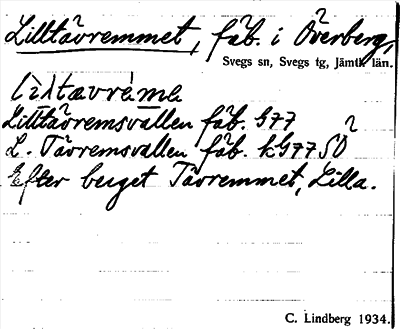 Lilltåvremmet, fäb. i Överberg,
Svegs sn, Svegs tg, Jämtl. län.
Lilltåvremsvallen fäb. G77
L. Tåvremsvallen fäb. kG77 SÖ
Efter berget Tåvremmet, Lilla.
C. Lindberg 1934.